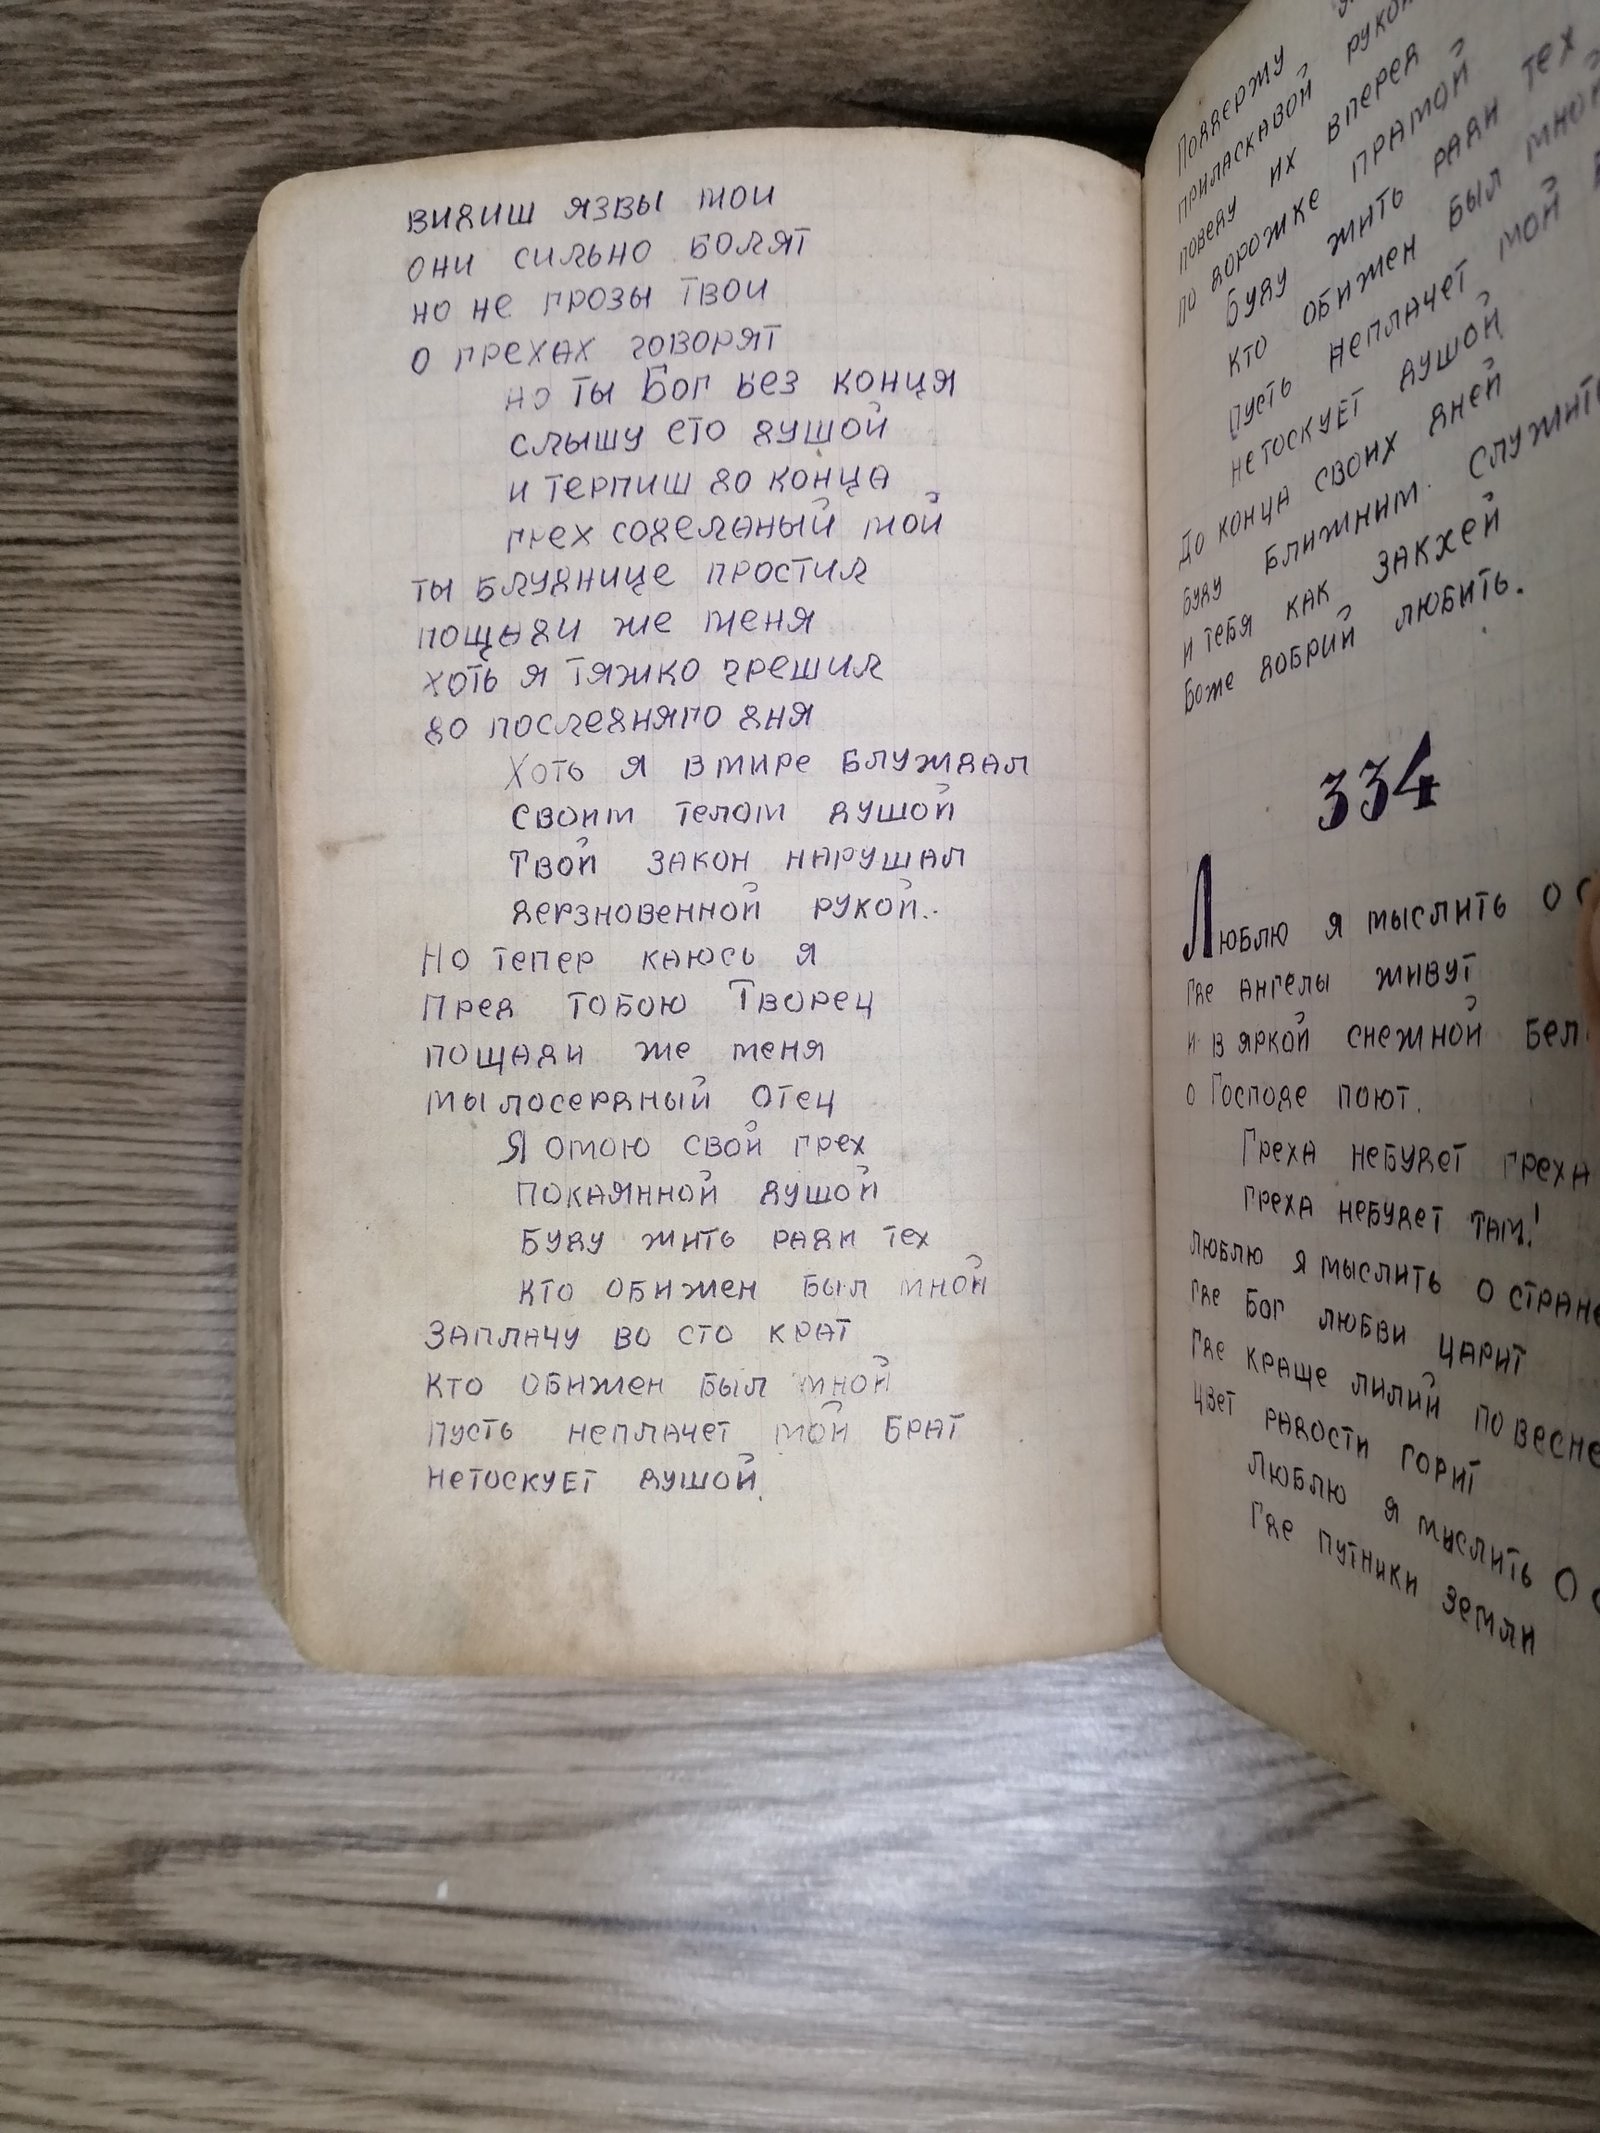 видиш язвы мои
они сильно болят
но не грозы твои
о грехах говорят
но ты Бог без конця
слышу ето душой
и терпиш до конца
грех соделаный мой
ты блуднице простил
пощади же меня
хоть я тяжко грешил
до последняго дня
Хоть я в мире блуждал
своим телом душой
Твой закон нарушал
дерзновенной рукой..
Но тепер каюсь я
Пред тобою Творец
пощади же меня
мылосердный отец
Я омою свой грех
покаянной душой
Буду жить ради тех
кто обижен был мной
Заплачу во сто крат
кто обижен был мной
пусть неплачет мой брат
нетоскует душой.
Поддержу
приласкавой
поведу их вперед
по дорожке прямой
Буду жить ради тех
кто обижен был мной
Пусть неплачет мой
нетоскует душой
До конца своих дней
буду ближним служить
и тебя как закхей
Боже добрий любить.
334
Люблю я мыслить о
где ангелы живут
и в яркой снежной
о Господе поют.
Греха небудет греха
греха небудет там!
люблю я мыслить о стране
где Бог любви царит
где краще лилий по весне
цвет радости горит
люблю я мыслить о
Где путники земли